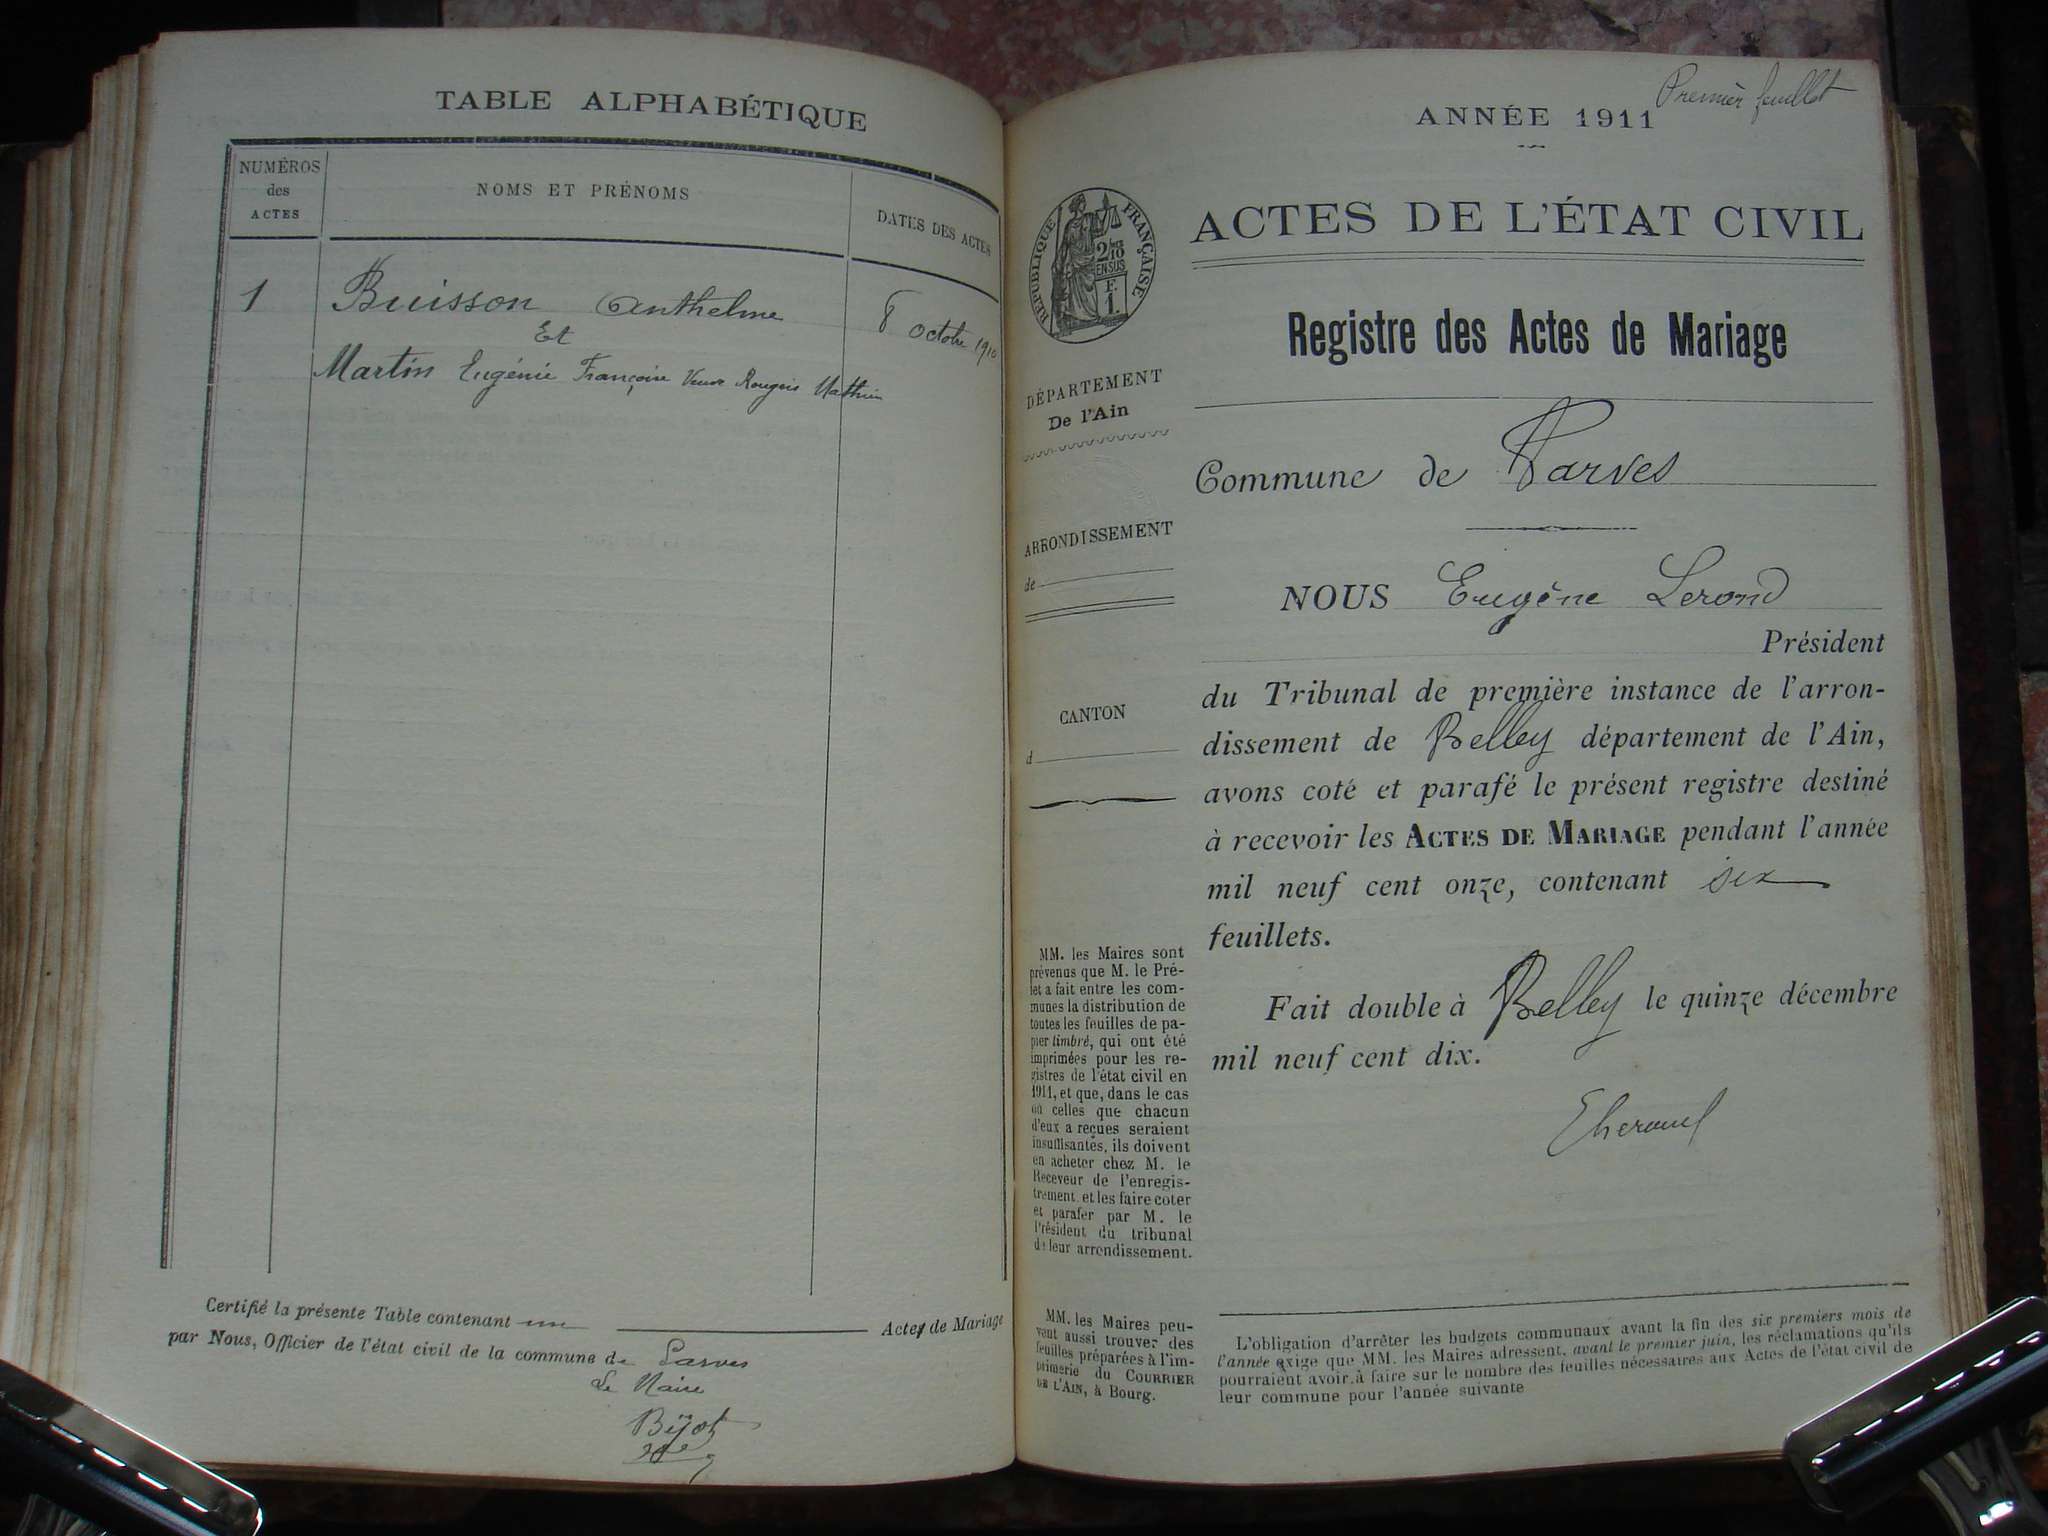 TABLE ALPHABÉTIQUE
NUMÉROS
des
ACTES
NOMS ET PRÉNOMS
DATES DES ACTES
1
Buisson Anthelme
8 octobre 1910
Et
Martin Eugénie Françoise Veuve Mathieu
Certifié la présente Table contenant un Actes de Mariage
par Nous, Officier de l'état civil de la commune de Parves
Le Maire
Premier feuillet
ANNÉE 1911
RÉPUBLIQUE FRANÇAISE
2/10
EN SUS
F.
1.
ACTES DE L'ÉTAT CIVIL
Registre des Actes de Mariage
DÉPARTEMENT
De l'Ain
ARRONDISSEMENT
de
CANTON
d
MM. les Maires sont
prévenus que M. le Pré-
fet a fait entre les com-
munes la distribution de
toutes les feuilles de pa-
pier timbré, qui ont été
imprimées pour les re-
gistres de l'état civil en
1911, et que, dans le cas
où celles que chacun
d'eux a reçues seraient
insuffisantes, ils doivent
en acheter chez M. le
Receveur de l'enregis-
trement et les faire coter
et parafer par M. le
Président du tribunal
de leur arrondissement.
MM. les Maires peu-
vent aussi trouver des
feuilles préparées à l'im-
primerie du COURRIER
DE L'AIN, à Bourg.
Commune de Parves
NOUS Eugène Lerond
Président
du Tribunal de première instance de l'arron-
dissement de Belley département de l'Ain,
avons coté et parafé le présent registre destiné
à recevoir les ACTES DE MARIAGE pendant l'année
mil neuf cent onze, contenant six
feuillets.
Fait double à Belley le quinze décembre
mil neuf cent dix.
L'obligation d'arrêter les budgets communaux avant la fin des six premiers mois de
l'année exige que MM. les Maires adressent, avant le premier juin, les réclamations qu'ils
pourraient avoir à faire sur le nombre des feuilles nécessaires aux Actes de l'état civil de
leur commune pour l'année suivante